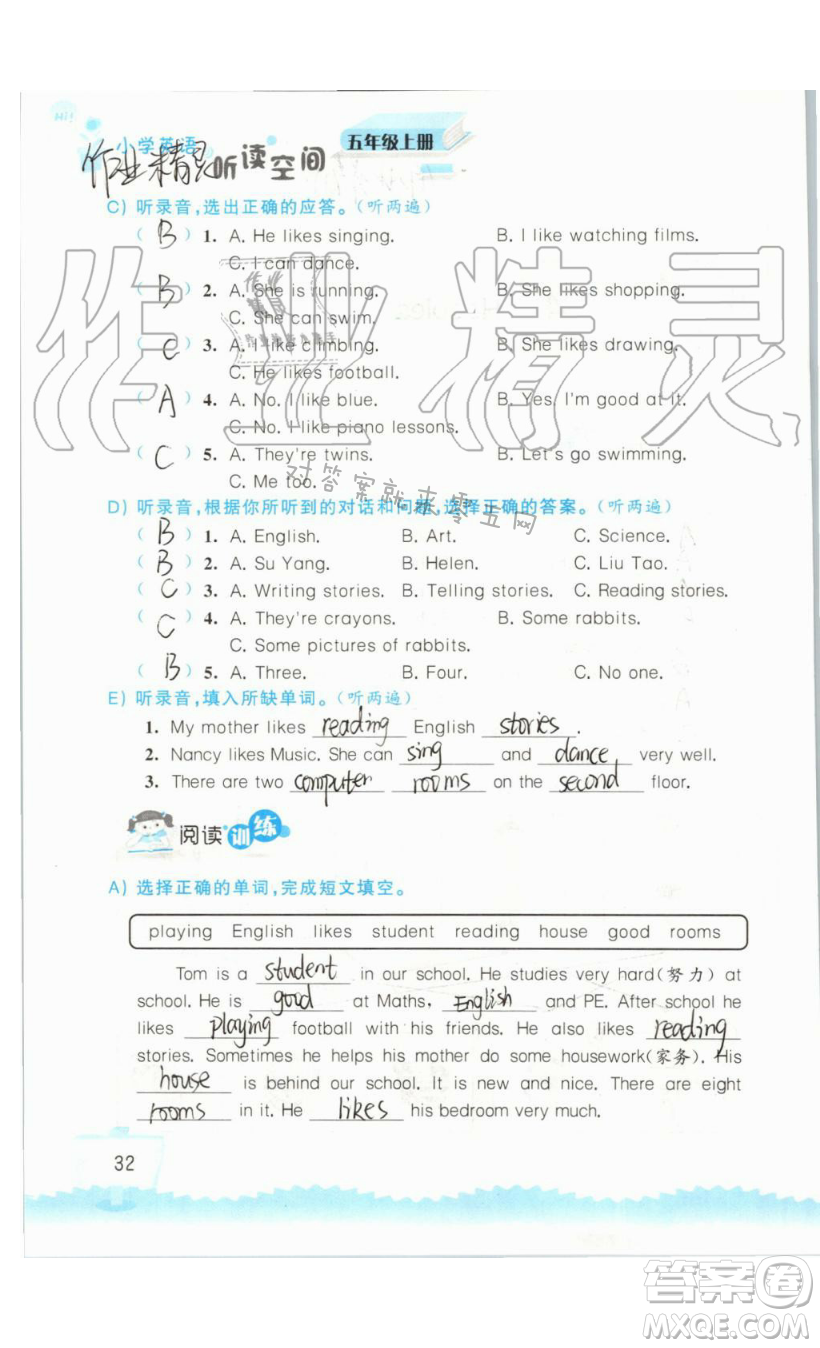 Hi!
小学英语
五年级上册
作业精灵听读空间
C) 听录音,选出正确的应答。(听两遍)
( B ) 1. A. He likes singing. B. I like watching films.
C. I can dance.
( B ) 2. A. She is running. B. She likes shopping.
C. She can swim.
( C ) 3. A. I like climbing. B. She likes drawing.
C. He likes football.
( A ) 4. A. No. I like blue. B. Yes, I'm good at it.
C. No. I like piano lessons.
( C ) 5. A. They're twins. B. Let's go swimming.
C. Me too.
作业精灵
对答案就来零五网
D) 听录音,根据你所听到的对话和问题,选择正确的答案。(听两遍)
( B ) 1. A. English. B. Art. C. Science.
( B ) 2. A. Su Yang. B. Helen. C. Liu Tao.
( C ) 3. A. Writing stories. B. Telling stories. C. Reading stories.
( C ) 4. A. They're crayons. B. Some rabbits.
C. Some pictures of rabbits.
( B ) 5. A. Three. B. Four. C. No one.
E) 听录音,填入所缺单词。(听两遍)
1. My mother likes reading English stories.
2. Nancy likes Music. She can sing and dance very well.
3. There are two computer rooms on the second floor.
阅读训练
A) 选择正确的单词,完成短文填空。
playing English likes student reading house good rooms
Tom is a student in our school. He studies very hard(努力) at
school. He is good at Maths, English and PE. After school he
likes playing football with his friends. He also likes reading
stories. Sometimes he helps his mother do some housework(家务). His
house is behind our school. It is new and nice. There are eight
rooms in it. He likes his bedroom very much.
32
答案卷
MXQE.COM